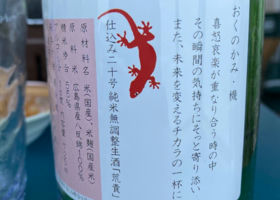 おくのかみ・機
喜怒哀楽が重なり合う時の中
その瞬間の気持ちにそっと寄り添い
また、未来を変えるチカラの一杯に
仕込み二十号 純米無調整生酒「荒責」
原材料名 米(国産)、米麹(国産米)
原料米 広島県産八反錦100%
精米歩合